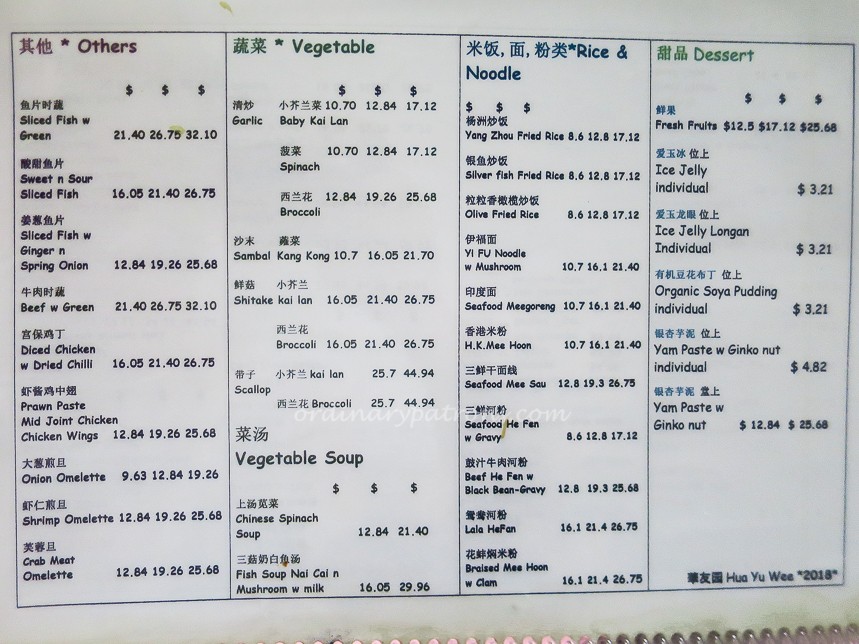 其他 * Others
$ $ $
鱼片时蔬
Sliced Fish w
Green 21.40 26.75 32.10
酸甜鱼片
Sweet n Sour
Sliced Fish 16.05 21.40 26.75
姜葱鱼片
Sliced Fish w
Ginger n
Spring Onion 12.84 19.26 25.68
牛肉时蔬
Beef w Green 21.40 26.75 32.10
宫保鸡丁
Diced Chicken
w Dried Chilli 16.05 21.40 26.75
虾酱鸡中翅
Prawn Paste
Mid Joint Chicken
Chicken Wings 12.84 19.26 25.68
大葱煎旦
Onion Omelette 9.63 12.84 19.26
虾仁煎旦
Shrimp Omelette 12.84 19.26 25.68
芙蓉旦
Crab Meat
Omelette 12.84 19.26 25.68
蔬菜 * Vegetable
$ $ $
清炒 小芥兰菜 10.70 12.84 17.12
Garlic Baby Kai Lan
菠菜 10.70 12.84 17.12
Spinach
西兰花 12.84 19.26 25.68
Broccoli
沙末 蕹菜
Sambal Kang Kong 10.7 16.05 21.70
鲜菇 小芥兰
Shitake kai lan 16.05 21.40 26.75
西兰花
Broccoli 16.05 21.40 26.75
带子 小芥兰 kai lan 25.7 44.94
Scallop
西兰花 Broccoli 25.7 44.94
菜汤
Vegetable Soup
$ $ $
上汤苋菜
Chinese Spinach
Soup 12.84 21.40
三菇奶白鱼汤
Fish Soup Nai Cai n
Mushroom w milk 16.05 29.96
米饭,面,粉类*Rice &
Noodle
$ $ $
杨洲炒饭
Yang Zhou Fried Rice 8.6 12.8 17.12
银鱼炒饭
Silver fish Fried Rice 8.6 12.8 17.12
粒粒香橄榄炒饭
Olive Fried Rice 8.6 12.8 17.12
伊福面
Yi FU Noodle
w Mushroom 10.7 16.1 21.40
印度面
Seafood Meegoreng 10.7 16.1 21.40
香港米粉
H.K.Mee Hoon 10.7 16.1 21.40
三鲜干面线
Seafood Mee Sau 12.8 19.3 26.75
三鲜河粉
Seafood He Fen
w Gravy 8.6 12.8 17.12
豉汁牛肉河粉
Beef He Fen w
Black Bean-Gravy 12.8 19.3 25.68
鸳鸯河粉
Lala HeFan 16.1 21.4 26.75
花蚌焖米粉
Braised Mee Hoon
w Clam 16.1 21.4 26.75
甜品 Dessert
$ $ $
鲜果
Fresh Fruits $12.5 $17.12 $25.68
爱玉冰 位上
Ice Jelly
individual $ 3.21
爱玉龙眼 位上
Ice Jelly Longan
Individual $ 3.21
有机豆花布丁 位上
Organic Soya Pudding
individual $ 3.21
银杏芋泥 位上
Yam Paste w Ginko nut
individual $ 4.82
银杏芋泥 堂上
Yam Paste w
Ginko nut $ 12.84 $ 25.68
華友園 Hua Yu Wee *2018*
ordinarypatrons.com